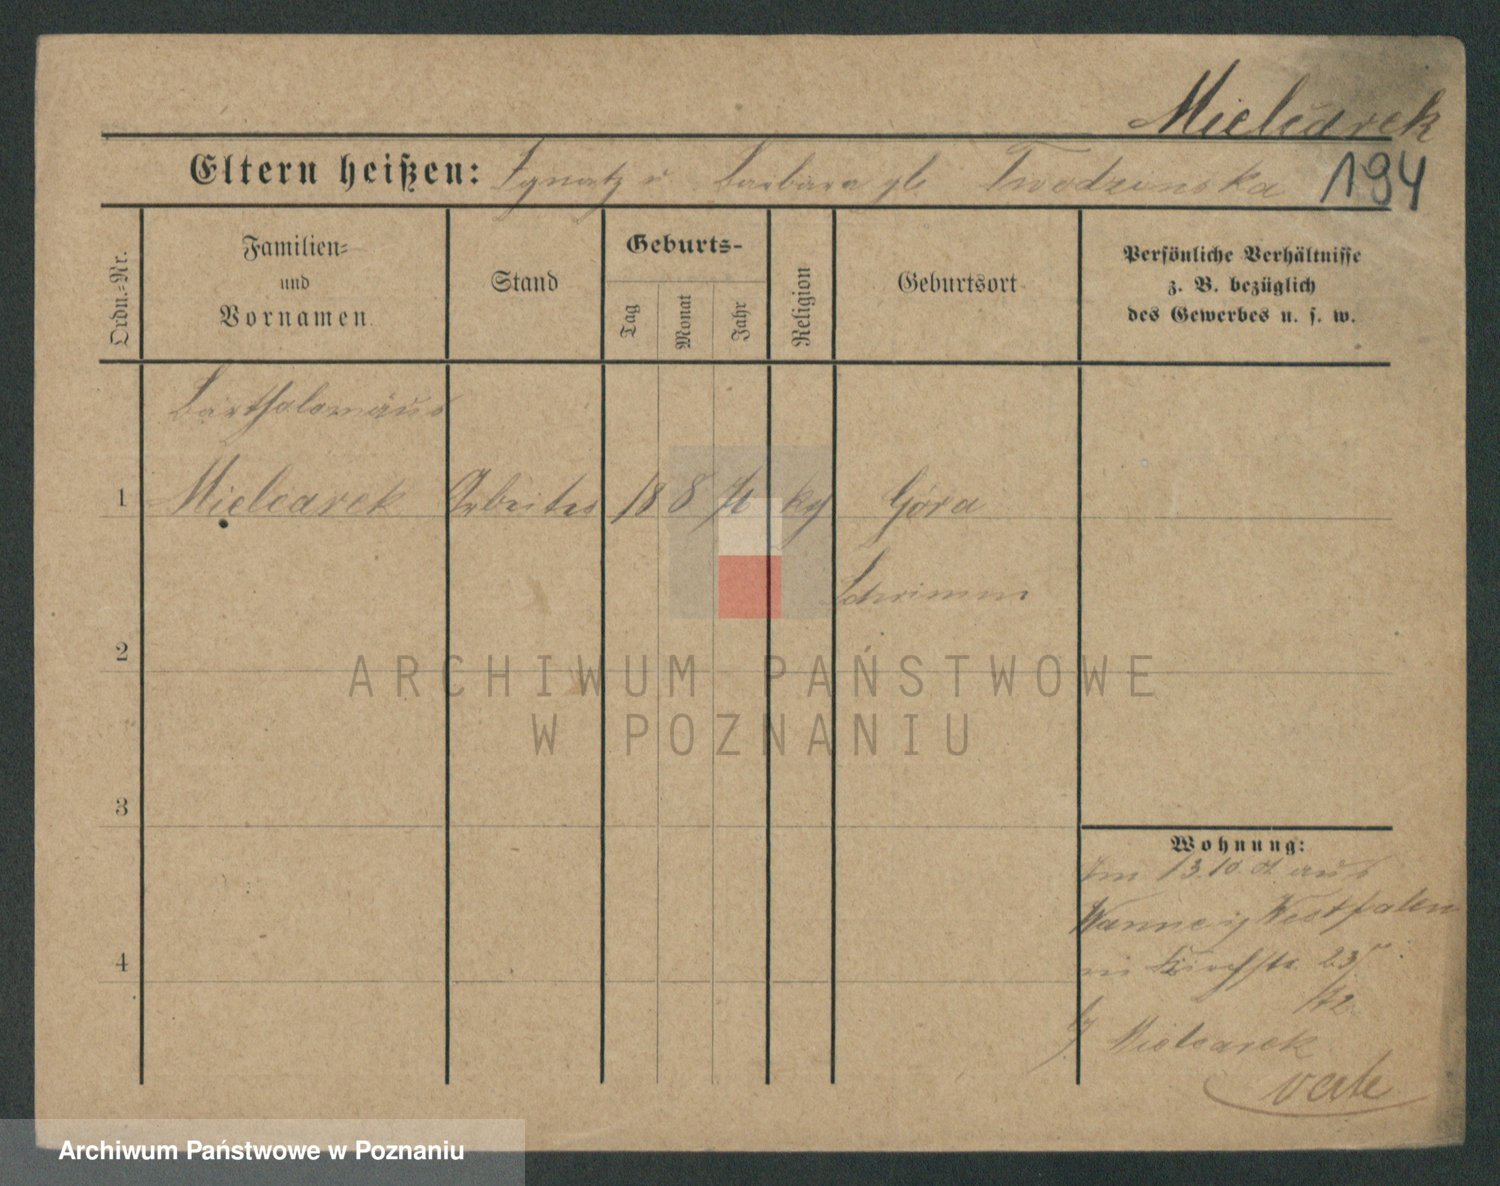 Mielcarek
Eltern heißen: Ignatz u Barbara gb
194
Ordn.=Nr.
Familien=
und
Vornamen
Stand
Geburts-
Tag
Monat
Jahr
Religion
Geburtsort
Persönliche Verhältnisse
z. B. bezüglich
des Gewerbes u. s. w.
Bartholomäus
1 Mielcarek Arbeiter 18 8 Góra
Schrimm
2
ARCHIWUM PAŃSTWOWE
W POZNANIU
3
Wohnung:
13.10. aus
Wanne Westfalen
4
Mielcarek
Archiwum Państwowe w Poznaniu